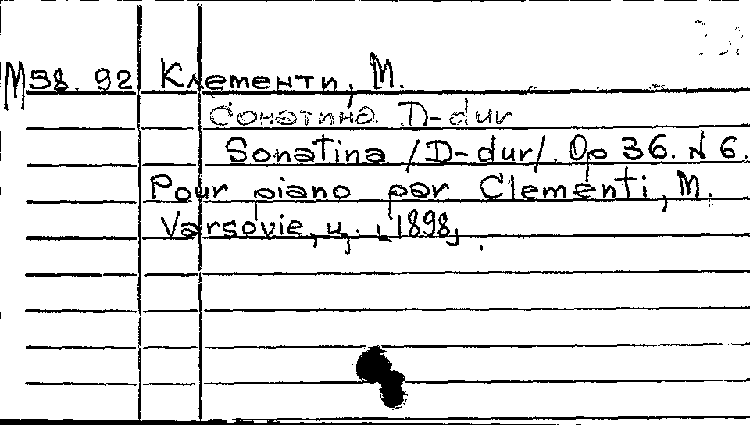 M 58. 92 Клементи, М.
Сонатина D-dur
Sonatina /D-dur/. Op 36. N 6.
Pour piano par Clementi, M.
Varsovie, ц. [1898].